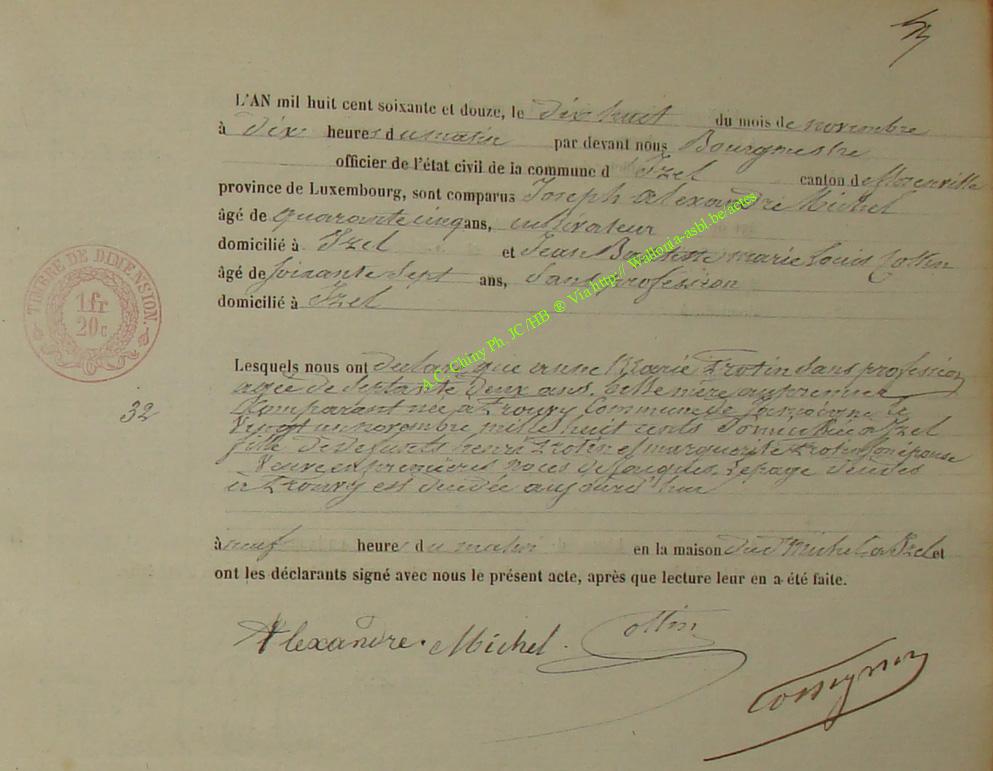 L'AN mil huit cent soixante et douze, le dix huit du mois de novembre
à dix heures du matin par devant nous Bourgmestre
officier de l'état civil de la commune d'Izel canton de florenville
province de Luxembourg, sont comparus Joseph alexandre Michel
âgé de quarante cinq ans, cultivateur
domicilié à Izel et Jean Baptiste marie Louis Collin
âgé de soixante sept ans, sans profession
domicilié à Izel
TIMBRE DE DIMENSION.
1fr
20c
Lesquels nous ont déclaré que Marie Frotin sans profession
agée de septante deux ans, belle mère au premier
Comparant née a frouvy Commune de Jamoigne le
32
Vingt un novembre mille huit cents domiciliée a Izel
fille de défunts henri Frotin et marguerite Frotin son épouse
Veuve en premières noces de Jacques Lepage
a frouvy est décédée aujourd'hui
à neuf heure du matin en la maison dud Michel a Izel et
ont les déclarants signé avec nous le présent acte, après que lecture leur en a été faite.
Alexandre. Michel. Collin
A.C. Chiny Ph. JC /HB ® Via http:// Wallonia-asbl.be/actes